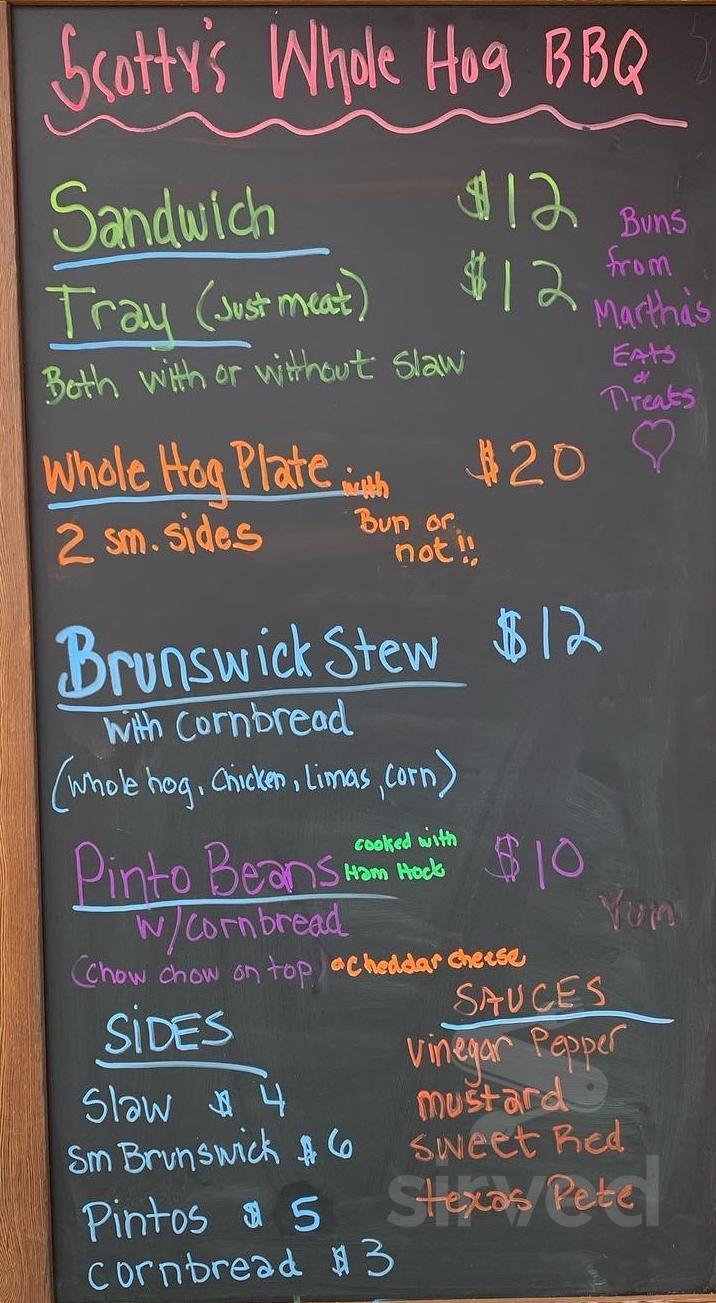 Scotty's Whole Hog BBQ
Sandwich $12
Tray (Just meat) $12
Both with or without Slaw
Buns
from
Martha's
Eats
&
Treats
Whole Hog Plate with $20
2 sm. sides
Bun or
not!!
Brunswick Stew $12
with Cornbread
(whole hog, Chicken, Limas, Corn)
Pinto Beans $10
cooked with
Ham Hock
w/cornbread
Yum
(Chow chow on top) & Cheddar cheese
SIDES
Slaw $4
Sm Brunswick $6
Pintos $5
cornbread $3
SAUCES
Vinegar Pepper
mustard
sweet Red
texas Pete
sirved